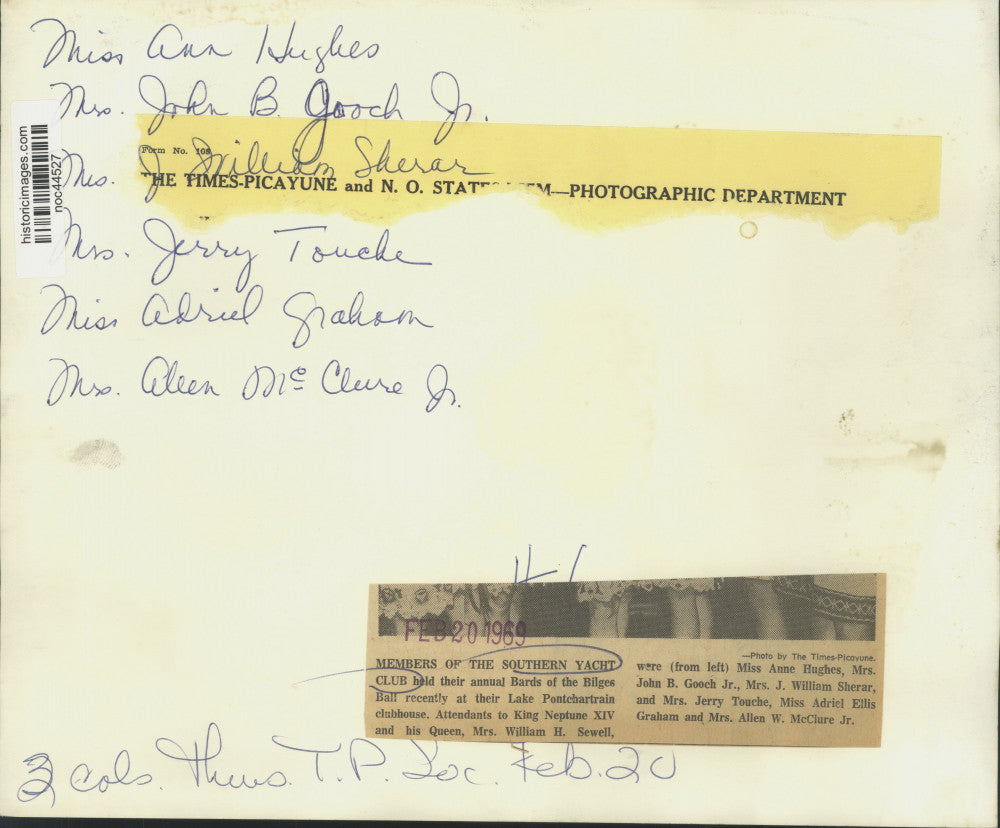 Miss Ann Hughes
Mrs. John B. Gooch Jr.
Form No. 108
Mrs. J William Sherar
THE TIMES-PICAYUNE and N. O. STATES—PHOTOGRAPHIC DEPARTMENT
historicimages.com
noc44527
Mrs. Jerry Touche
Miss Adriel Graham
Mrs. Aleen Mc Clure Jr.
FEB 20 1969
—Photo by The Times-Picayune.
MEMBERS OF THE SOUTHERN YACHT
CLUB held their annual Bards of the Bilges
Ball recently at their Lake Pontchartrain
clubhouse. Attendants to King Neptune XIV
and his Queen, Mrs. William H. Sewell,
were (from left) Miss Anne Hughes, Mrs.
John B. Gooch Jr., Mrs. J. William Sherar,
and Mrs. Jerry Touche, Miss Adriel Ellis
Graham and Mrs. Allen W. McClure Jr.
cols. Thurs. T.P. Soc. Feb. 20